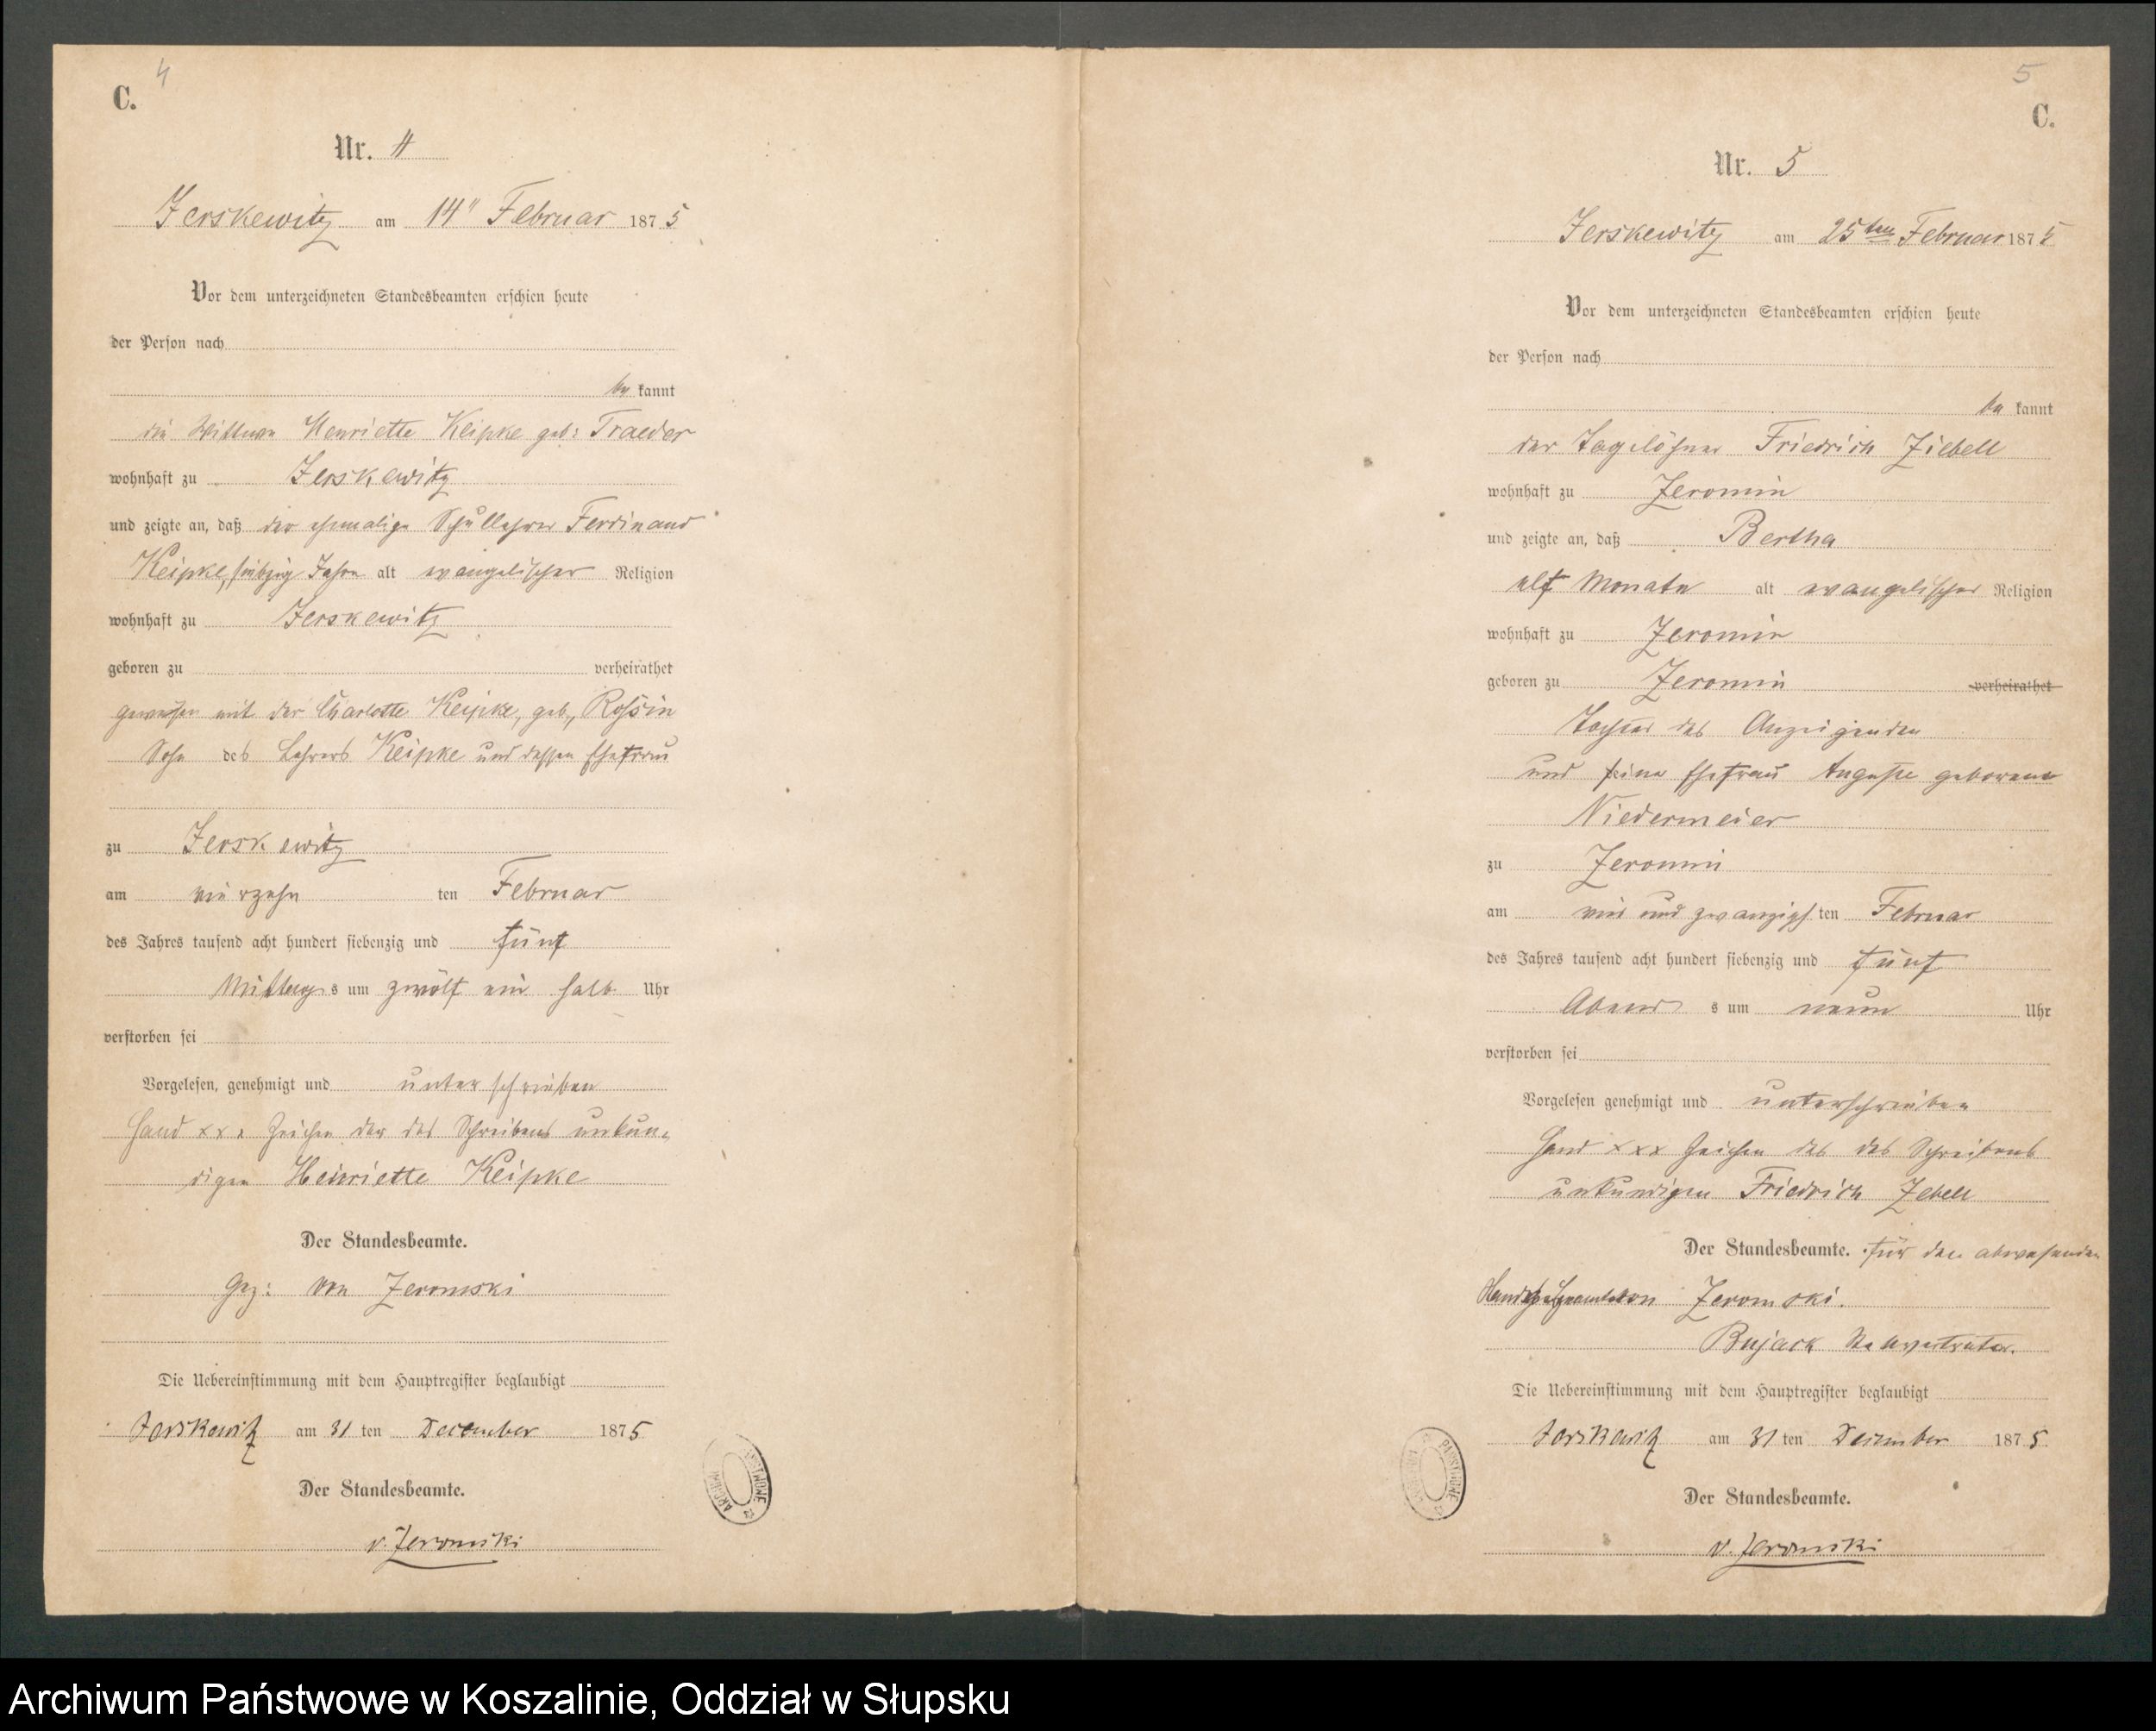 4
C.
Nr. 4
Jerskewitz am 14" Februar 1875
Vor dem unterzeichneten Standesbeamten erschien heute
der Person nach
be kannt
die Wittwe Henriette Keipke geb: Traeder
wohnhaft zu Jerskewitz
und zeigte an, daß der ehemalige Schullehrer Ferdinand
Keipke, siebzig Jahre alt evangelischer Religion
wohnhaft zu Jerskewitz
geboren zu verheirathet
gewesen mit der Charlotte Keipke, geb, Rossin
Sohn des Lehrers Keipke und dessen Ehefrau
zu Jerskewitz
am vierzehn ten Februar
des Jahres tausend acht hundert siebenzig und fünf
Mittags um zwölf ein halb Uhr
verstorben sei
Vorgelesen, genehmigt und unterschrieben
Hand xxx Zeichen der des Schreibens unkun-
digen Henriette Keipke
Der Standesbeamte.
Gez: von Jeromski
Die Uebereinstimmung mit dem Hauptregister beglaubigt
Jerskewitz am 31 ten December 1875
Der Standesbeamte.
v. Jeromski
5
C.
Nr. 5
Jerskewitz am 25ten Februar 1875
Vor dem unterzeichneten Standesbeamten erschien heute
der Person nach
be kannt
der Tagelöhner Friedrich Ziebell
wohnhaft zu Jeromin
und zeigte an, daß Bertha
elf Monate alt evangelischer Religion
wohnhaft zu Jeromin
geboren zu Jeromin verheirathet
Tochter des Anzeigenden
und seiner Ehefrau Auguste geborene
Niedermeier
zu Jeromin
am vier und zwanzigsten Februar
des Jahres tausend acht hundert siebenzig und fünf
Abends um neun Uhr
verstorben sei
Vorgelesen genehmigt und unterschrieben
Hand xxx Zeichen des des Schreibens
unkundigen Friedrich Zebell
Der Standesbeamte. für den abwesenden
von Jeromski.
Bujack Stellvertreter.
Die Uebereinstimmung mit dem Hauptregister beglaubigt
Jerskewitz am 31 ten Dezember 1875
Der Standesbeamte.
v. Jeromski
ARCHIWUM PAŃSTWOWE
ARCHIWUM PAŃSTWOWE
Archiwum Państwowe w Koszalinie, Oddział w Słupsku